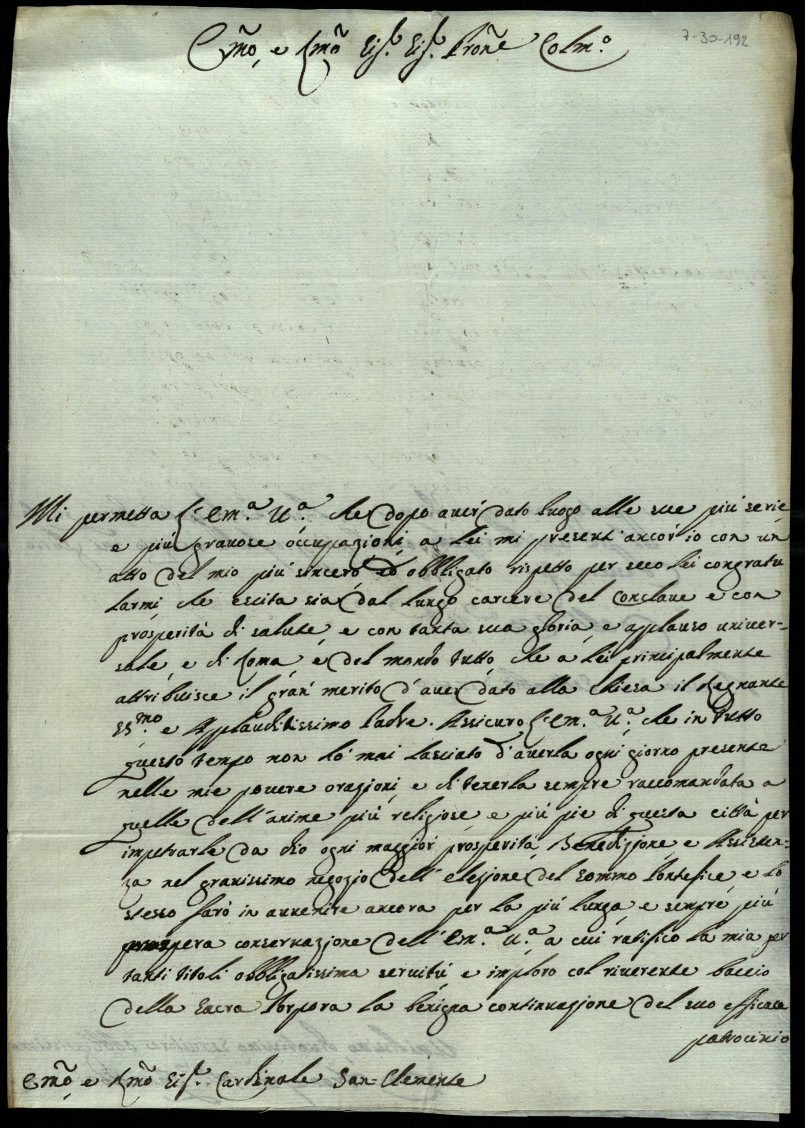 Em̃o e Rm̃o Sig.r Sig.r Prone Colm.o
7-30-192
Mi permetta l'Em.a V.a che dopo aver dato luogo alle sue più serie
e più gravose occupazioni a Lei mi presenti ancor io con un
atto del mio più sincero ed obbligato rispetto per seco Lei congratu
larmi che escita sia dal lungo carcere del Conclave e con
prosperità di salute, e con tanta sua gloria, e applauso univer-
sale, e di Roma, e del mondo tutto, che a Lei principalmente
attribuisce il gran merito d'aver dato alla chiesa il Regnante
SS.mo e Applauditissimo Padre. Assicuro l'Em.a V.a che in tutto
questo tempo non hò mai lasciato d'averla ogni giorno presente
nelle mie povere orazioni, e di tenerla sempre raccomandata a
quelle dell'anime più religiose e più pie di questa città per
impetrarle da dio ogni maggior prosperità, Benedizione, e Assisten-
za nel gravissimo negozio dell'elezione del sommo Pontefice e lo
stesso farò in avvenire ancora per la più lunga e sempre più
prospera conservazione dell'Em.a V.a a cui ratifico la mia per
tanti titoli obbligatissima servitù e imploro col riverente baccio
della Sacra Porpora la benigna continuazione del suo efficace
patrocinio
Em̃o e Rm̃o Sig.r Cardinale San Clemente